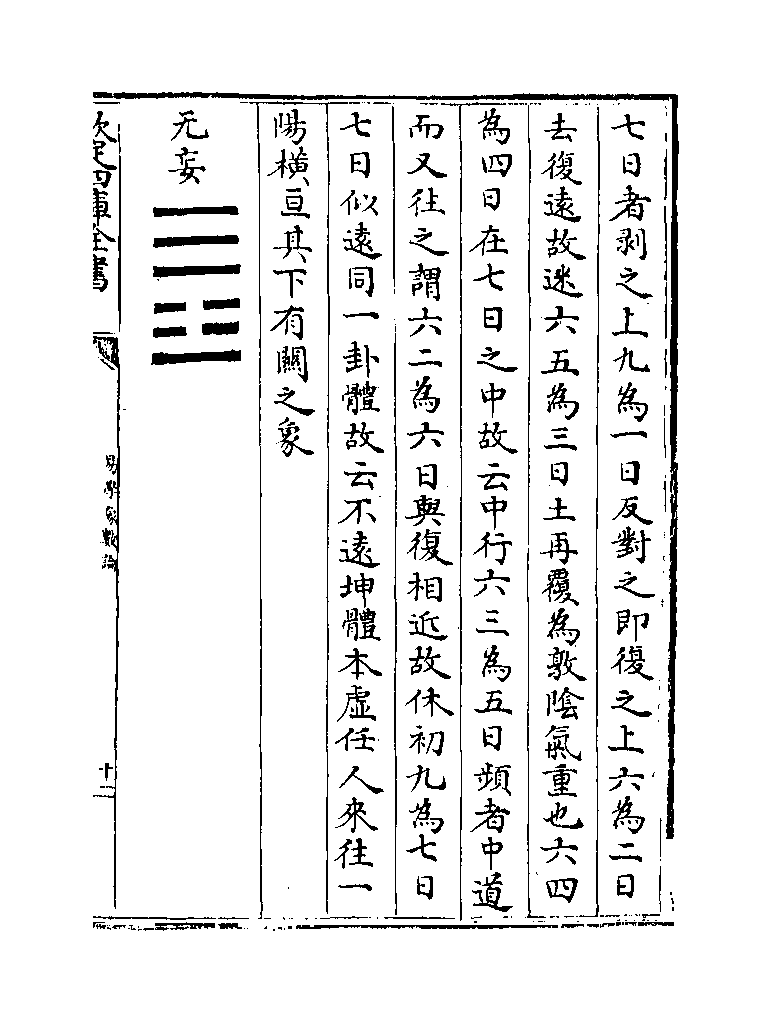 七日者剥之上九為一日反對之即復之上六為二日
去復遠故迷六五為三日土再覆為敦陰氣重也六四
為四日在七日之中故云中行六三為五日頻者中道
而又往之謂六二為六日與復相近故休初九為七日
七日似遠同一卦體故云不遠坤體本虛任人來往一
陽橫亘其下有關之象
无妄
欽定四庫全書
易學象數論
十二